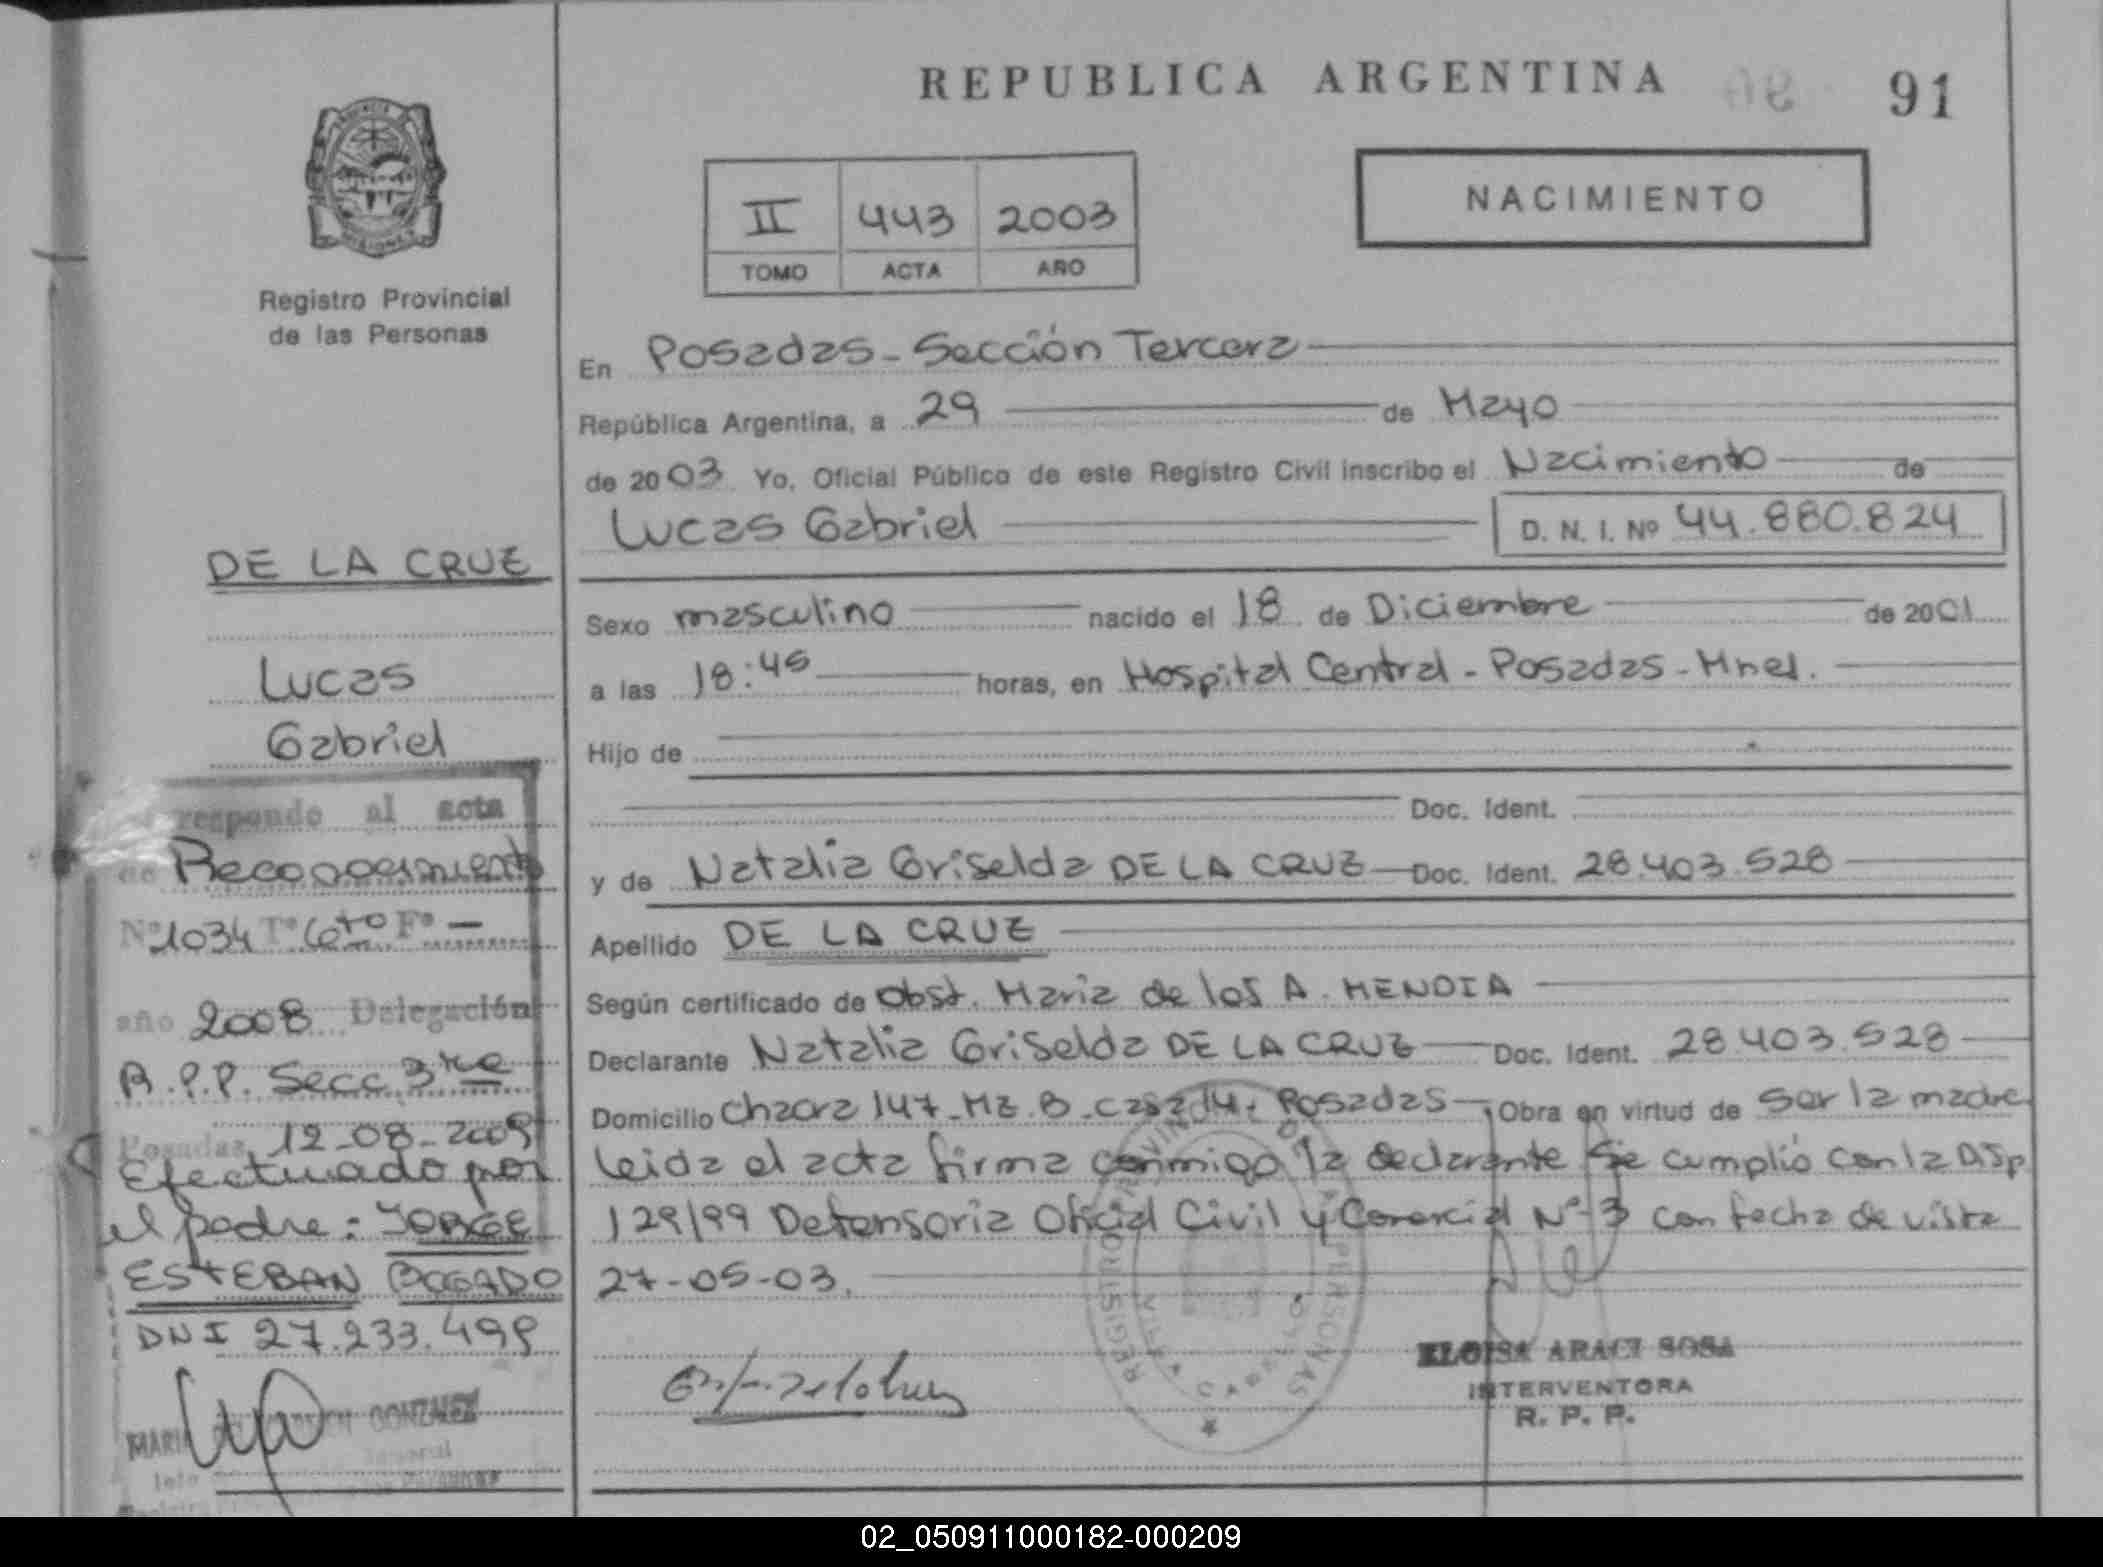 REPUBLICA ARGENTINA
91
II 443 2003
TOMO ACTA AÑO
NACIMIENTO
Registro Provincial
de las Personas
En Posadas - Sección Tercera
República Argentina, a 29 de Mayo
de 2003 Yo, Oficial Público de este Registro Civil inscribo el Nacimiento de
Lucas Gabriel D. N. I. Nº 44.880.824
Sexo masculino nacido el 18 de Diciembre de 2001
a las 18:45 horas, en Hospital Central - Posadas - Mnes.
Hijo de
Doc. Ident.
y de Natalia Griselda DE LA CRUZ Doc. Ident. 28.403.528
Apellido DE LA CRUZ
Según certificado de Obst. Maria de los A. MENDIA
Declarante Natalia Griselda DE LA CRUZ Doc. Ident. 28.403.528
Domicilio Chacra 147 - Mz. B - casa 14 - Posadas Obra en virtud de Ser la madre
leida el acta firma conmigo la declarante Se cumplió con la Disp
129/99 Defensoria Oficial Civil y Comercial Nº 3 con fecha de vista
27-05-03.
ELOISA ARACI SOSA
INTERVENTORA
R. P. P.
DE LA CRUZ
Lucas
Gabriel
al acta
de Reconocimiento
Nº 1034 Tº 6to Fº -
año 2008 Delegación
R.P.P. Secc. 3ra
Posadas, 12-08-2008
Efectuado por
el padre: JORGE
ESTEBAN BOGADO
DNI 27.233.499
GONZALEZ
02_050911000182-000209